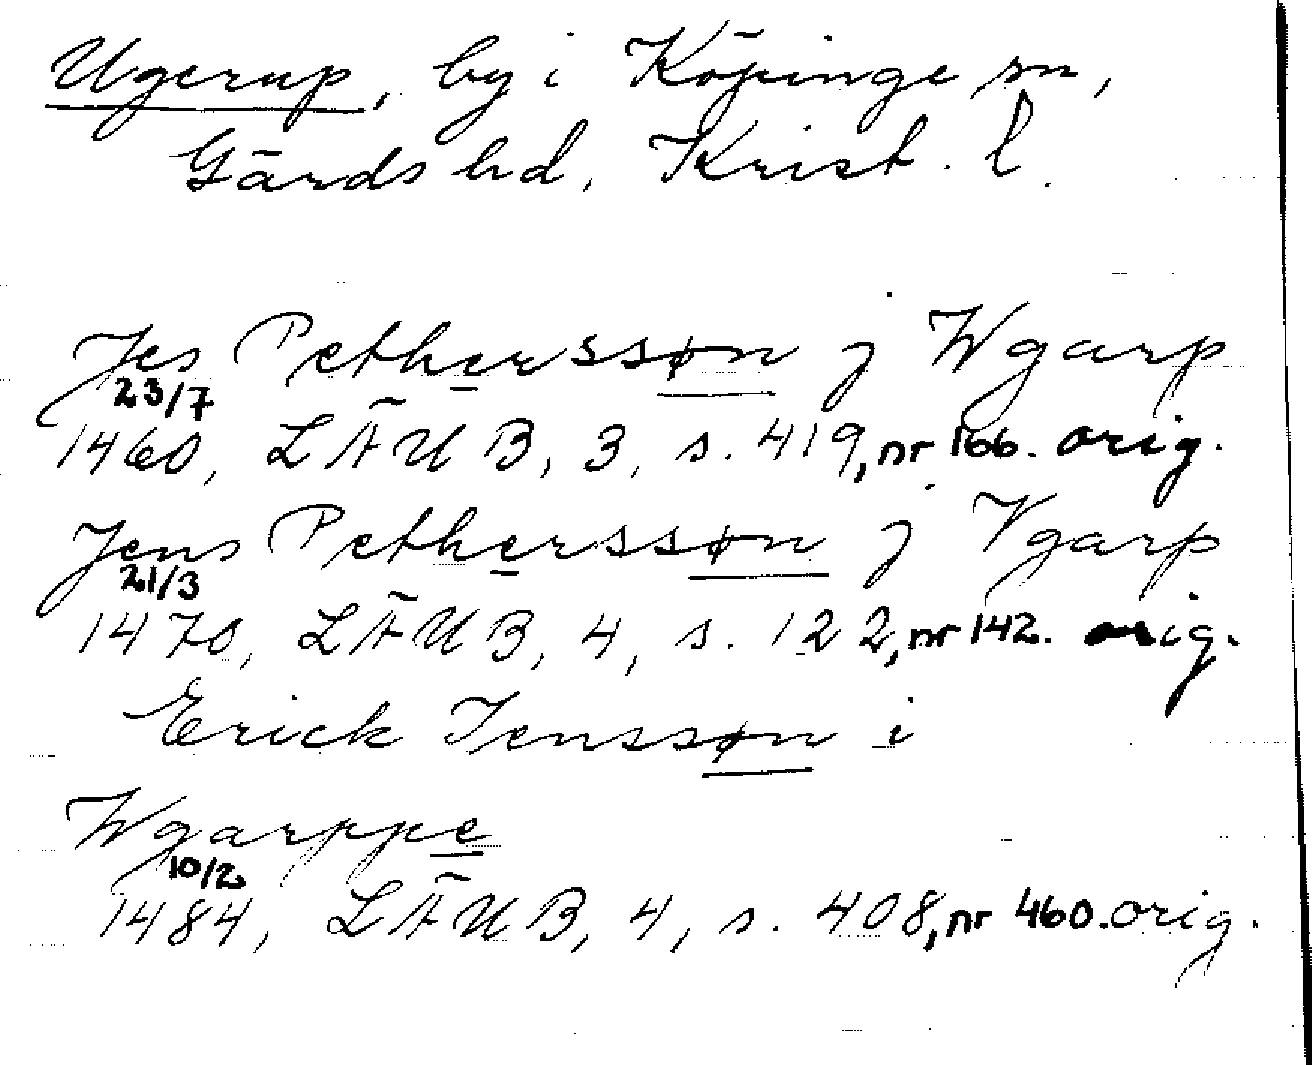 Ugerup, by i Köpinge sn,
Gärds hd, Krist. l.
Jes Petherssøn j Wgarp
23/7
1460, LÄUB, 3, s. 419, nr 166. orig.
Jens Petherssøn j Vgarp
21/3
1470, LÄUB, 4, s. 122, nr 142. orig.
Erick Jenssøn i
Wgarppe
10/2
1484, LÄUB, 4, s. 408, nr 460. orig.